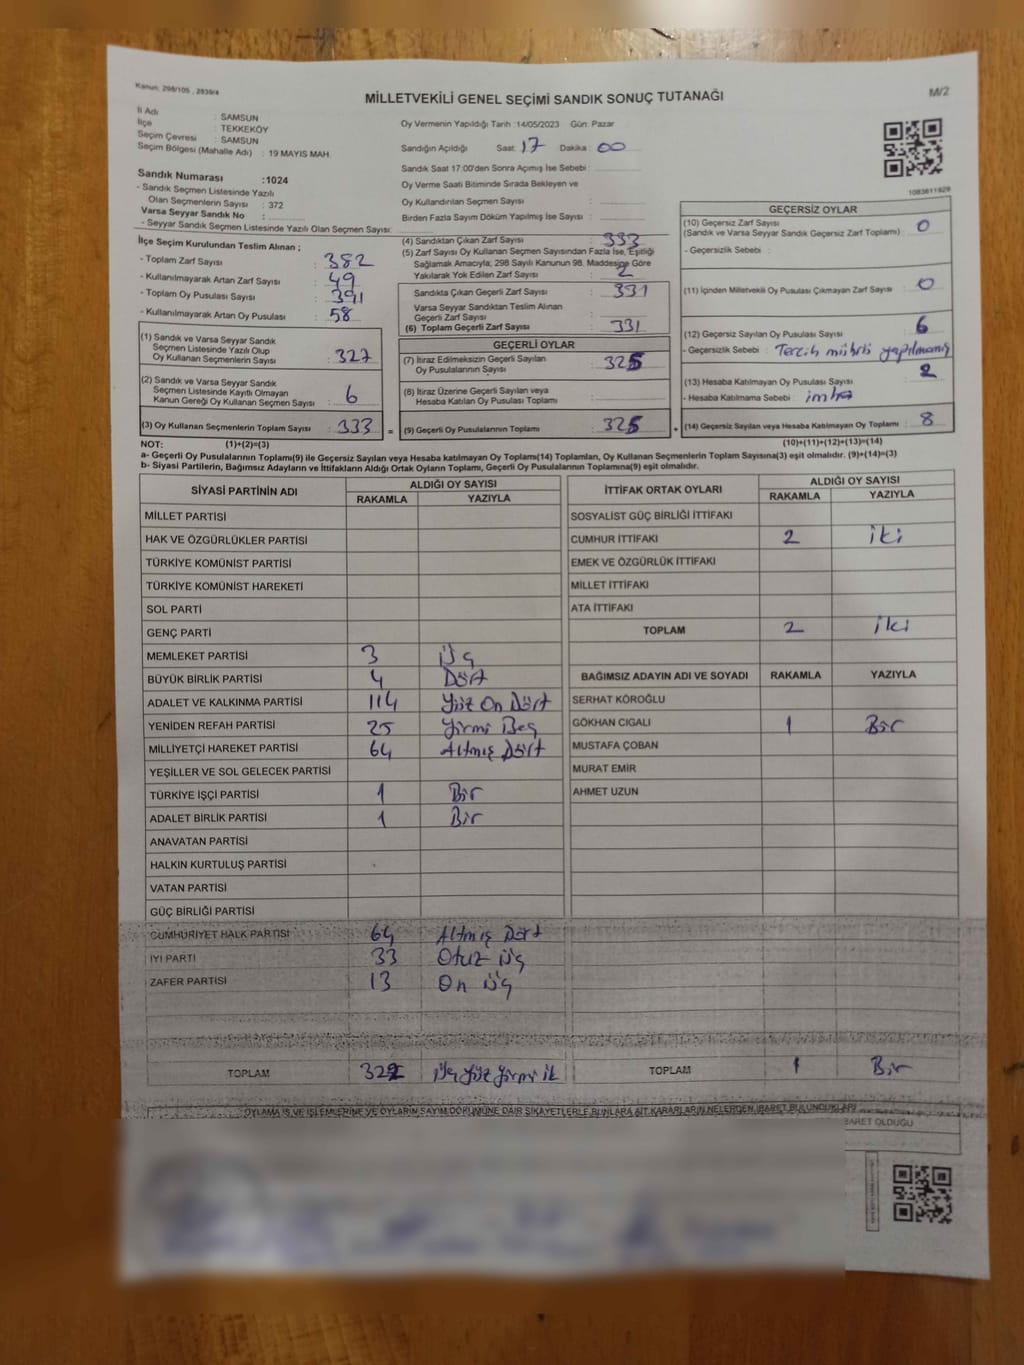 Kanun: 298/105 , 2839/4
M/2
MİLLETVEKİLİ GENEL SEÇİMİ SANDIK SONUÇ TUTANAĞI
İl Adı : SAMSUN
İlçe : TEKKEKÖY
Seçim Çevresi : SAMSUN
Seçim Bölgesi (Mahalle Adı) : 19 MAYIS MAH.
Oy Vermenin Yapıldığı Tarih :14/05/2023 Gün: Pazar
Sandığın Açıldığı Saat: 17 Dakika : 00
Sandık Saat 17:00'den Sonra Açmış İse Sebebi :
Oy Verme Saati Bitiminde Sırada Bekleyen ve
Oy Kullandırılan Seçmen Sayısı :
Birden Fazla Sayım Döküm Yapılmış İse Sayısı :
1083611929
Sandık Numarası :1024
- Sandık Seçmen Listesinde Yazılı
Olan Seçmenlerin Sayısı : 372
Varsa Seyyar Sandık No :
- Seyyar Sandık Seçmen Listesinde Yazılı Olan Seçmen Sayısı:
İlçe Seçim Kurulundan Teslim Alınan ;
- Toplam Zarf Sayısı : 382
- Kullanılmayarak Artan Zarf Sayısı : 49
- Toplam Oy Pusulası Sayısı : 391
- Kullanılmayarak Artan Oy Pusulası : 58
(1) Sandık ve Varsa Seyyar Sandık
Seçmen Listesinde Yazılı Olup
Oy Kullanan Seçmenlerin Sayısı : 327
(2) Sandık ve Varsa Seyyar Sandık
Seçmen Listesinde Kayıtlı Olmayan
Kanun Gereği Oy Kullanan Seçmen Sayısı : 6
(3) Oy Kullanan Seçmenlerin Toplam Sayısı : 333 =
(4) Sandıktan Çıkan Zarf Sayısı : 333
(5) Zarf Sayısı Oy Kullanan Seçmen Sayısından Fazla İse, Eşitliği
Sağlamak Amacıyla; 298 Sayılı Kanunun 98. Maddesine Göre
Yakılarak Yok Edilen Zarf Sayısı : 2
Sandıkta Çıkan Geçerli Zarf Sayısı : 331
Varsa Seyyar Sandıktan Teslim Alınan
Geçerli Zarf Sayısı :
(6) Toplam Geçerli Zarf Sayısı : 331
GEÇERLİ OYLAR
(7) İtiraz Edilmeksizin Geçerli Sayılan
Oy Pusulalarının Sayısı : 325
(8) İtiraz Üzerine Geçerli Sayılan veya
Hesaba Katılan Oy Pusulası Toplamı :
(9) Geçerli Oy Pusulalarının Toplamı : 325 +
GEÇERSİZ OYLAR
(10) Geçersiz Zarf Sayısı
(Sandık ve Varsa Seyyar Sandık Geçersiz Zarf Toplamı) : 0
- Geçersizlik Sebebi :
(11) İçinden Milletvekili Oy Pusulası Çıkmayan Zarf Sayısı : 0
(12) Geçersiz Sayılan Oy Pusulası Sayısı : 6
- Geçersizlik Sebebi : Tercih mührü yapılmamış
(13) Hesaba Katılmayan Oy Pusulası Sayısı : 2
- Hesaba Katılmama Sebebi : imha
(14) Geçersiz Sayılan veya Hesaba Katılmayan Oy Toplamı : 8
NOT: (1)+(2)=(3) (10)+(11)+(12)+(13)=(14)
a- Geçerli Oy Pusulalarının Toplamı(9) ile Geçersiz Sayılan veya Hesaba Katılmayan Oy Toplamı(14) Toplamları, Oy Kullanan Seçmenlerin Toplam Sayısına(3) eşit olmalıdır. (9)+(14)=(3)
b- Siyasi Partilerin, Bağımsız Adayların ve İttifakların Aldığı Ortak Oyların Toplamı, Geçerli Oy Pusulalarının Toplamına(9) eşit olmalıdır.
SİYASİ PARTİNİN ADI ALDIĞI OY SAYISI
RAKAMLA YAZIYLA
MİLLET PARTİSİ
HAK VE ÖZGÜRLÜKLER PARTİSİ
TÜRKİYE KOMÜNİST PARTİSİ
TÜRKİYE KOMÜNİST HAREKETİ
SOL PARTİ
GENÇ PARTİ
MEMLEKET PARTİSİ 3 Üç
BÜYÜK BİRLİK PARTİSİ 4 Dört
ADALET VE KALKINMA PARTİSİ 114 Yüz On Dört
YENİDEN REFAH PARTİSİ 25 Yirmi Beş
MİLLİYETÇİ HAREKET PARTİSİ 64 Altmış Dört
YEŞİLLER VE SOL GELECEK PARTİSİ
TÜRKİYE İŞÇİ PARTİSİ 1 Bir
ADALET BİRLİK PARTİSİ 1 Bir
ANAVATAN PARTİSİ
HALKIN KURTULUŞ PARTİSİ
VATAN PARTİSİ
GÜÇ BİRLİĞİ PARTİSİ
CUMHURİYET HALK PARTİSİ 64 Altmış Dört
İYİ PARTİ 33 Otuz Üç
ZAFER PARTİSİ 13 On Üç
TOPLAM 322 Üç Yüz Yirmi İk
İTTİFAK ORTAK OYLARI ALDIĞI OY SAYISI
RAKAMLA YAZIYLA
SOSYALİST GÜÇ BİRLİĞİ İTTİFAKI
CUMHUR İTTİFAKI 2 iki
EMEK VE ÖZGÜRLÜK İTTİFAKI
MİLLET İTTİFAKI
ATA İTTİFAKI
TOPLAM 2 iki
BAĞIMSIZ ADAYIN ADI VE SOYADI RAKAMLA YAZIYLA
SERHAT KÖROĞLU
GÖKHAN CIGALI 1 Bir
MUSTAFA ÇOBAN
MURAT EMİR
AHMET UZUN
TOPLAM 1 Bir
OYLAMA İŞ VE İŞLEMLERİNE VE OYLARIN SAYIM DÖKÜMÜNE DAİR ŞİKAYETLERLE BUNLARA AİT KARARLARIN NELERDEN İBARET BULUNDUKLARI
İBARET OLDUĞU